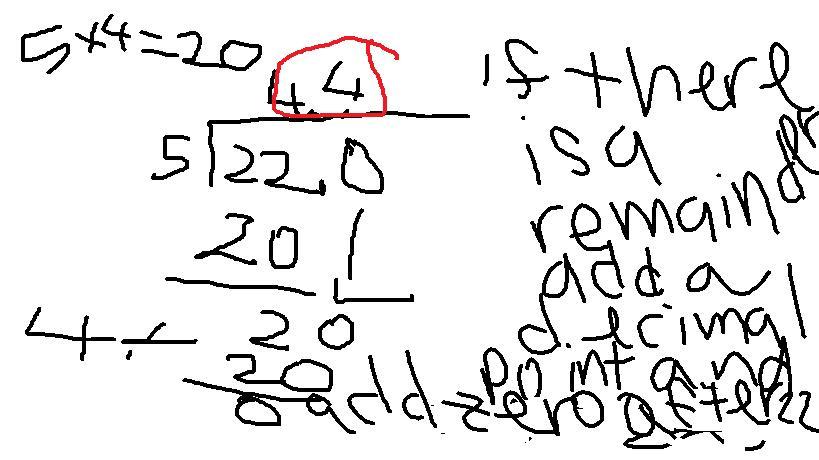 5×4=20
4.4
5 22.0
20
20
20
0
if there
is a
remainder
add a
decimal
point and
add zero after 22